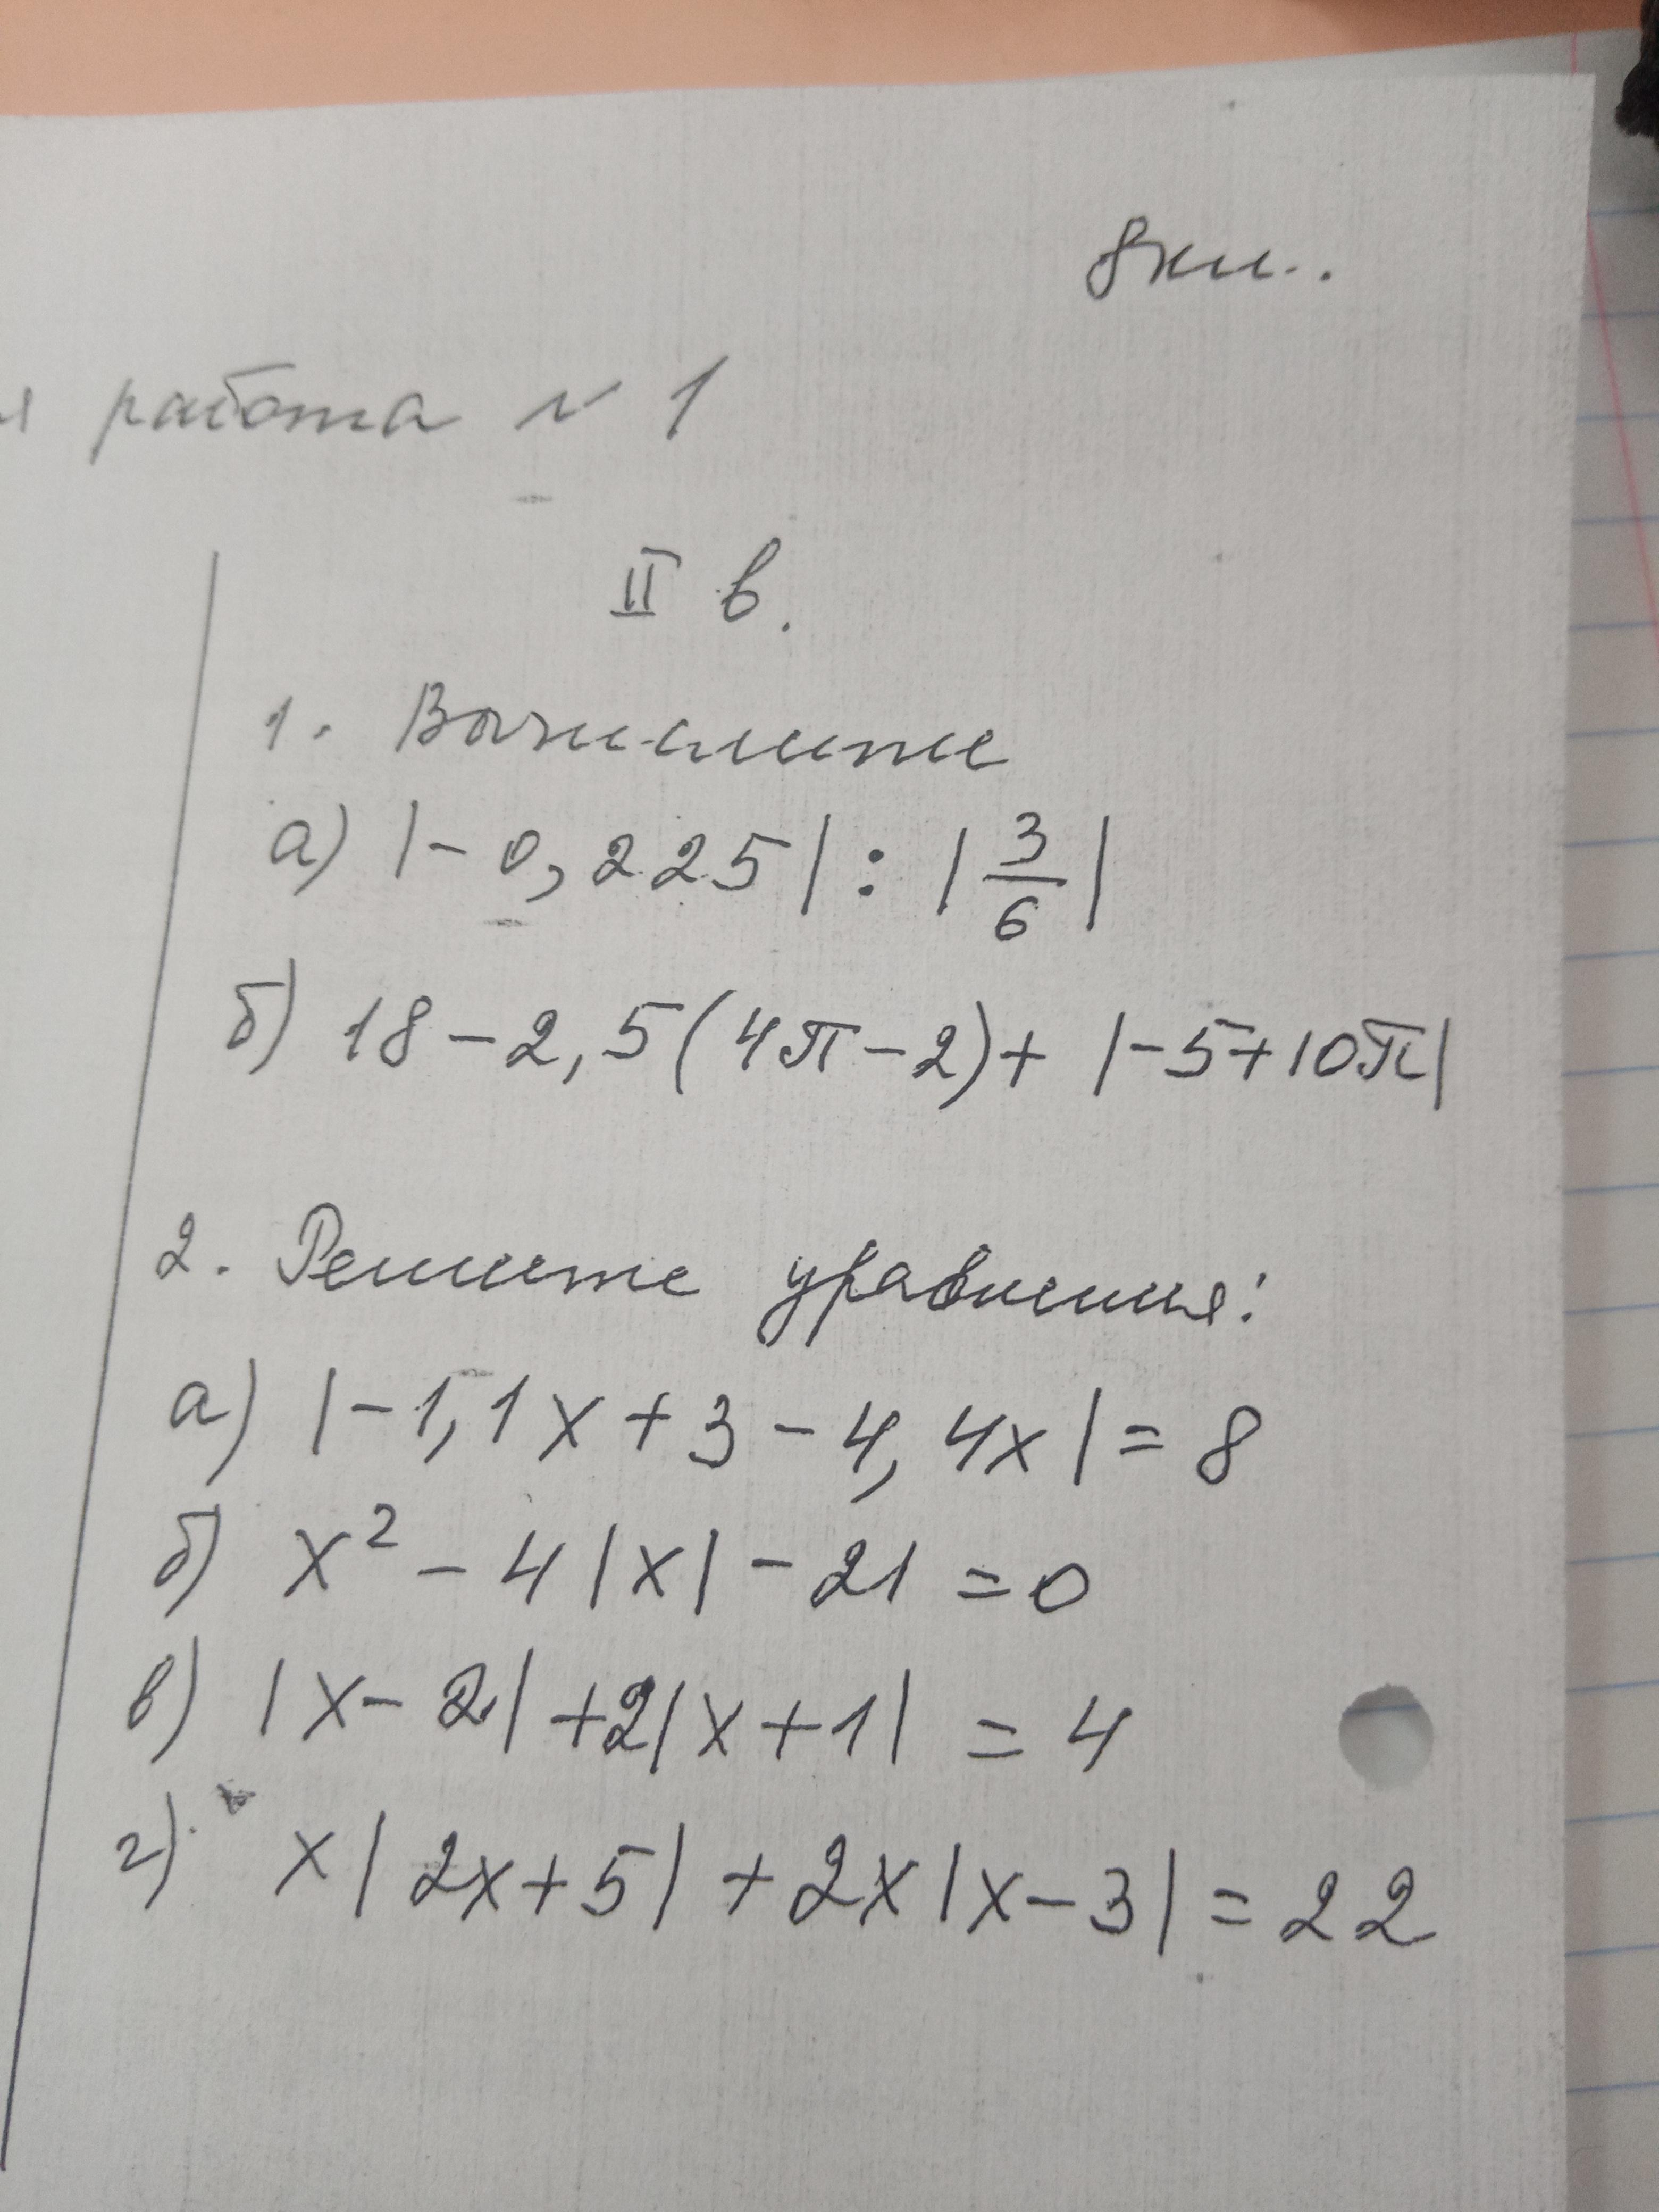 8кл..
я работа № 1
II в.
1. Вычислите
а) |-0,225| : |3/6|
б) 18-2,5(4π-2)+ |-5+10π|
2. Решите уравнения:
а) |-1,1x+3-4,4x|=8
б) x²-4|x|-21=0
в) |x-2|+2|x+1| = 4
г) x|2x+5|+2x|x-3|=22